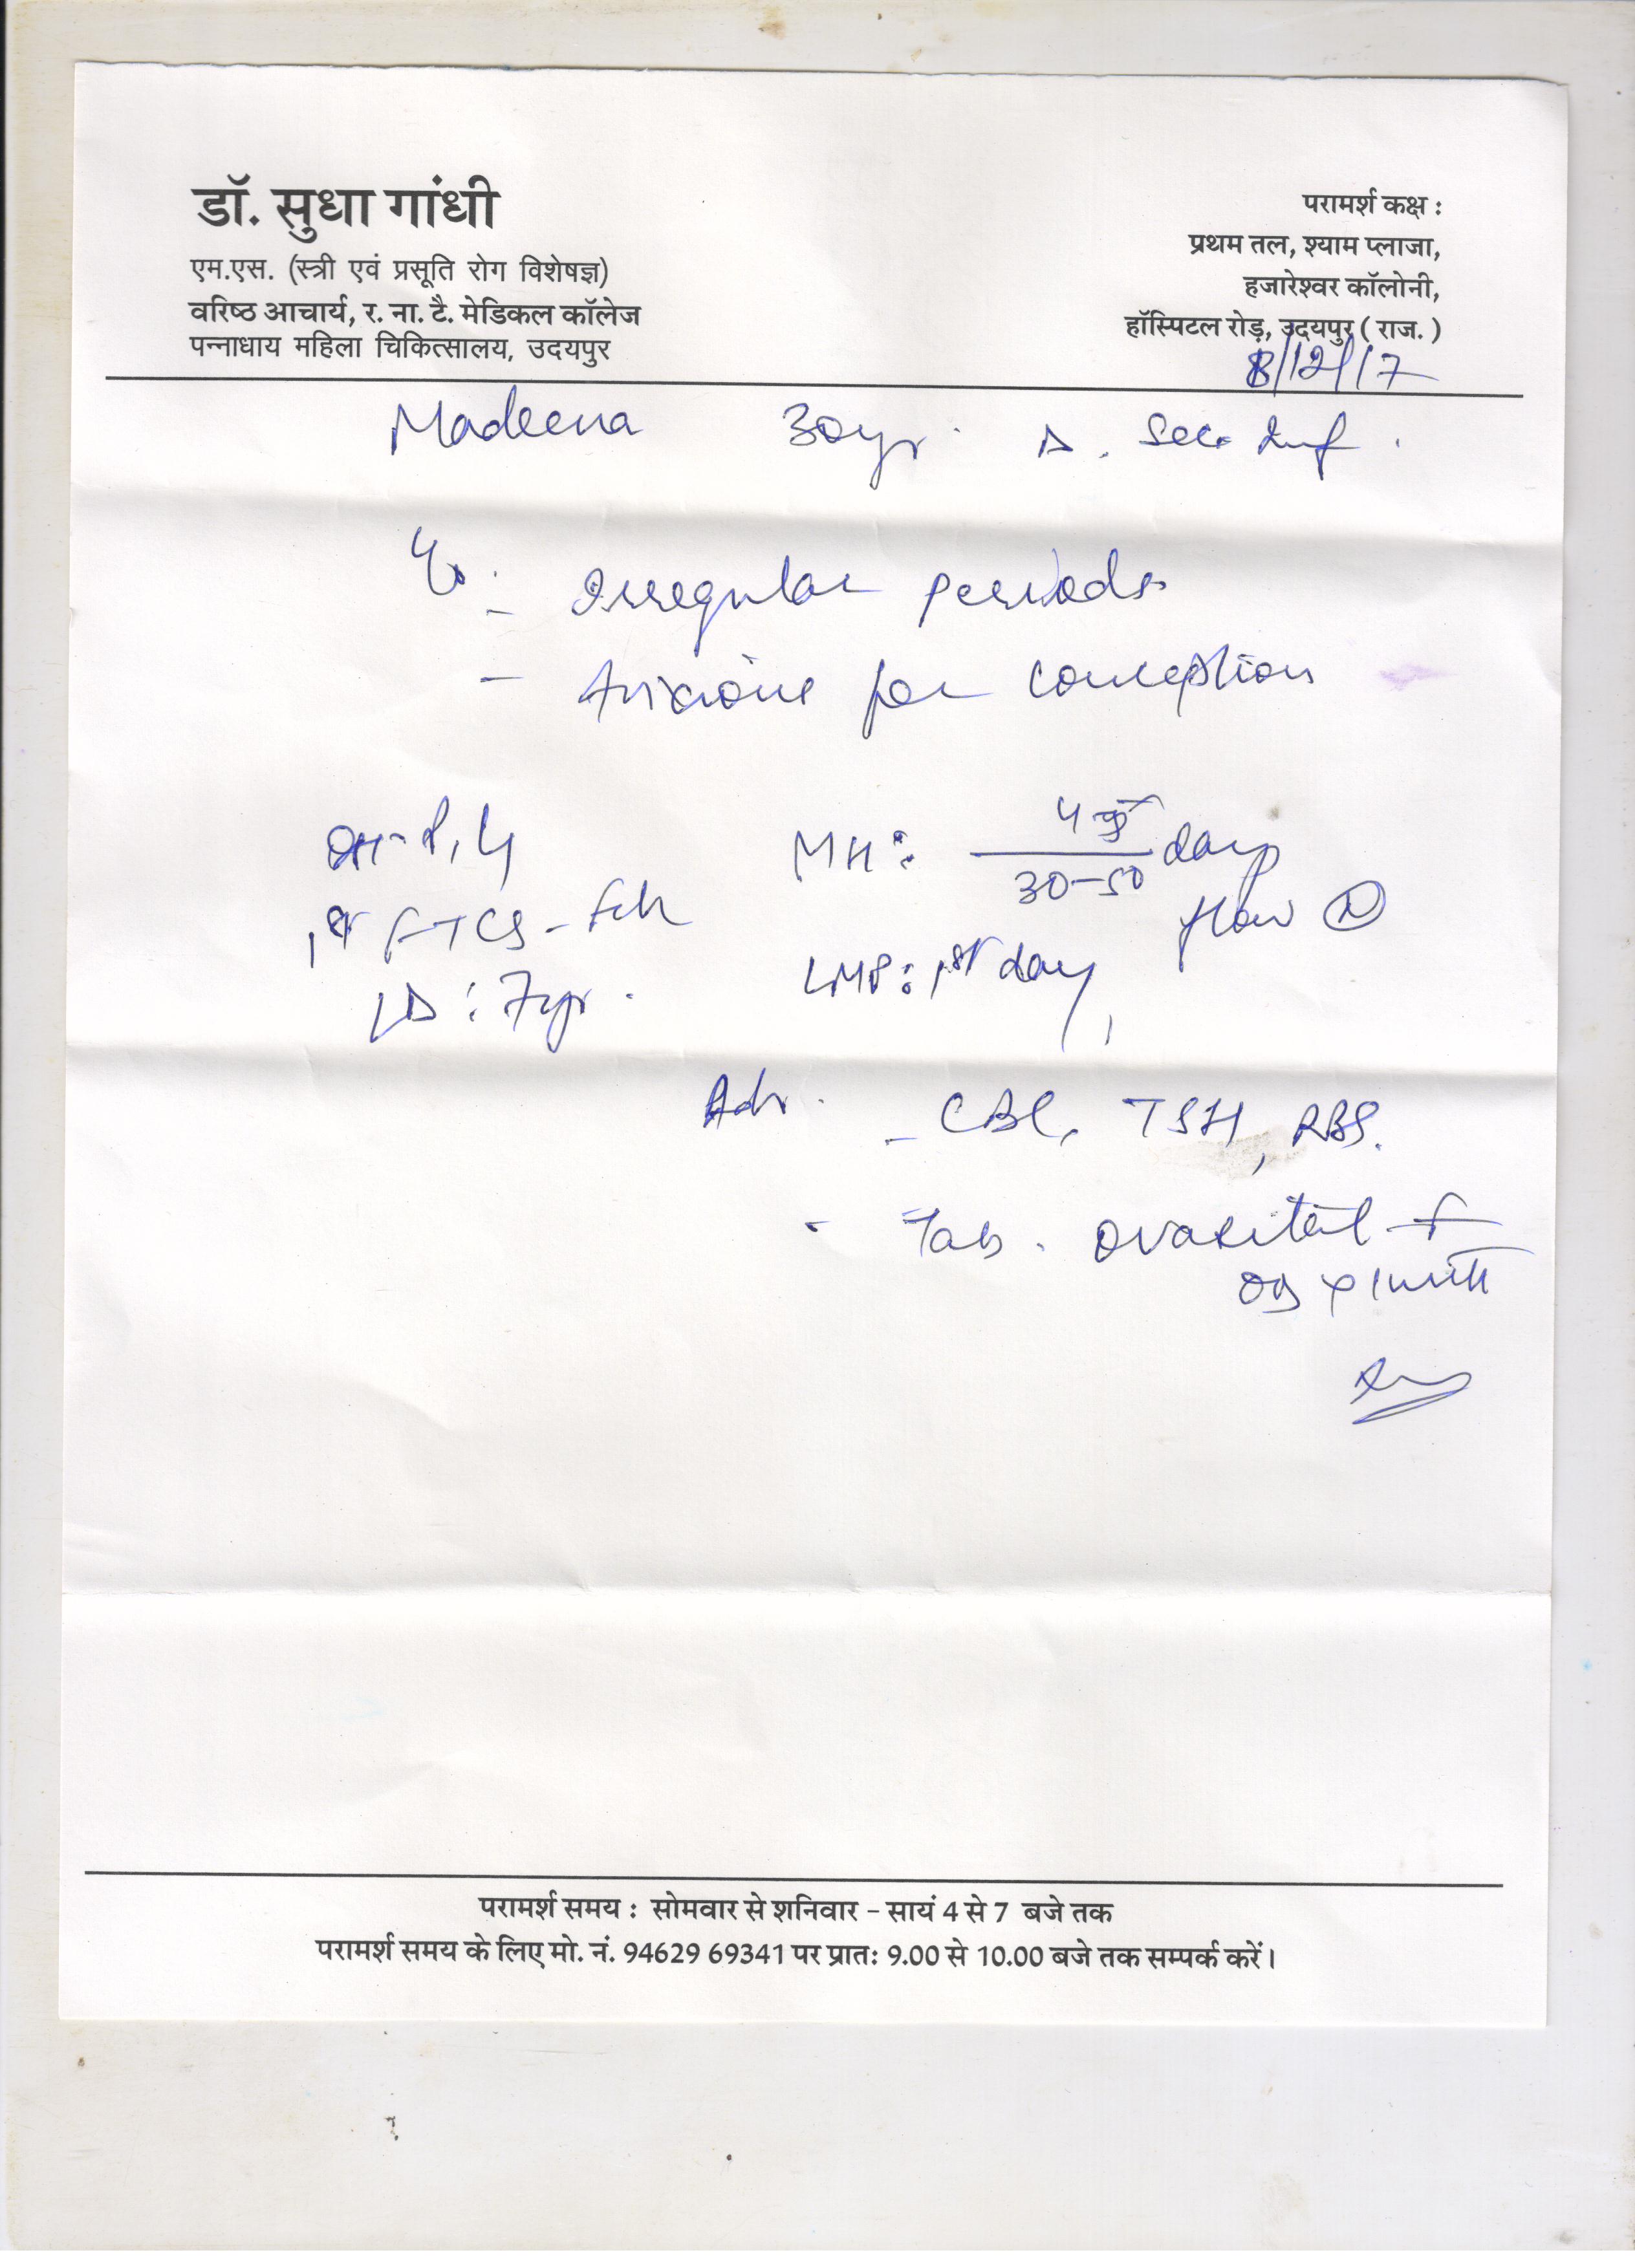 डॉ. सुधा गांधी
एम.एस. (स्त्री एवं प्रसूति रोग विशेषज्ञ)
वरिष्ठ आचार्य, र. ना. टै. मेडिकल कॉलेज
पन्नाधाय महिला चिकित्सालय, उदयपुर
परामर्श कक्ष :
प्रथम तल, श्याम प्लाजा,
हजारेश्वर कॉलोनी,
हॉस्पिटल रोड़, उदयपुर ( राज. )
8/12/17
Madeena 30yr. Δ. Sec. Inf.
- Irregular periods
- Anxious for conception
MH: days
30-50
flow (N)
FTCS -
LD : 7yr.
LMP: 1st day
Adv. - CBC, TSH, RBS.
- Tab. Ovacital -
OD x 1
परामर्श समय : सोमवार से शनिवार – सायं 4 से 7 बजे तक
परामर्श समय के लिए मो. नं. 94629 69341 पर प्रातः 9.00 से 10.00 बजे तक सम्पर्क करें।